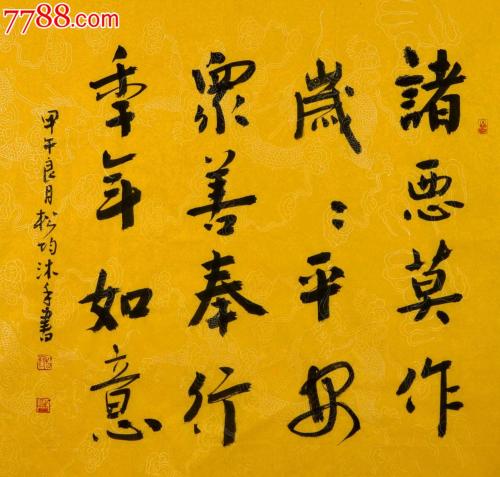 7788.com
諸惡莫作
歲:平安
眾善奉行
季年如意
甲午良月松均沐手書